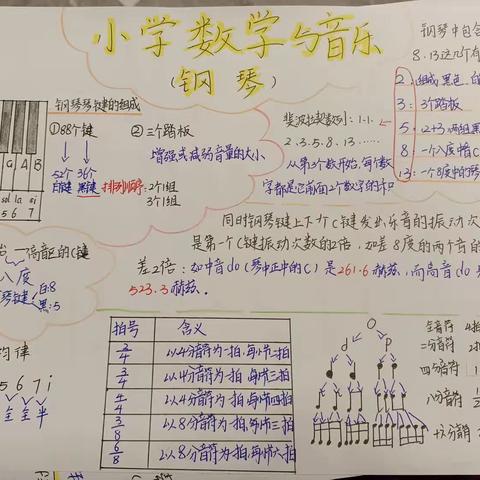 小学数学与音乐
(钢琴)
钢琴中包含
8.13这几个
2:组成黑色
3:3个踏板
5:2+3两组黑
8:一个八度
13:一个8度中的琴
钢琴琴键的组成
①88个键
52个 36个
白键 黑键 排列顺序:2个1组
3个1组
②三个踏板
增强或减弱音量的大小
斐波拉契数列:1.1.
2.3.5.8.13……
从第3个数开始,每个数
字都是它前面2个数字的和
G A B
sol la si
5 6 7
同时钢琴键上下个C键发出乐音的振动次
是第一个C键振动次数的2倍,如差8度的两个音的
差2倍:如中音do(琴中正中的C)是261.6赫兹,而高音do
523.3赫兹。
一高音区的C键
八度
琴键 白:8
黑:5
律
5 6 7 i
全 全 半
拍号 含义
2/4 以4分音符为一拍,每小节二拍
3/4 以4分音符为一拍,每小节三拍
4/4 以4分音符为一拍,每小节四拍
3/8 以8分音符为一拍,每小节三拍
6/8 以8分音符为一拍,每小节六拍
全音符 4拍
二分音符 2拍
四分音符 1
八分音符 1/2
十六分音符